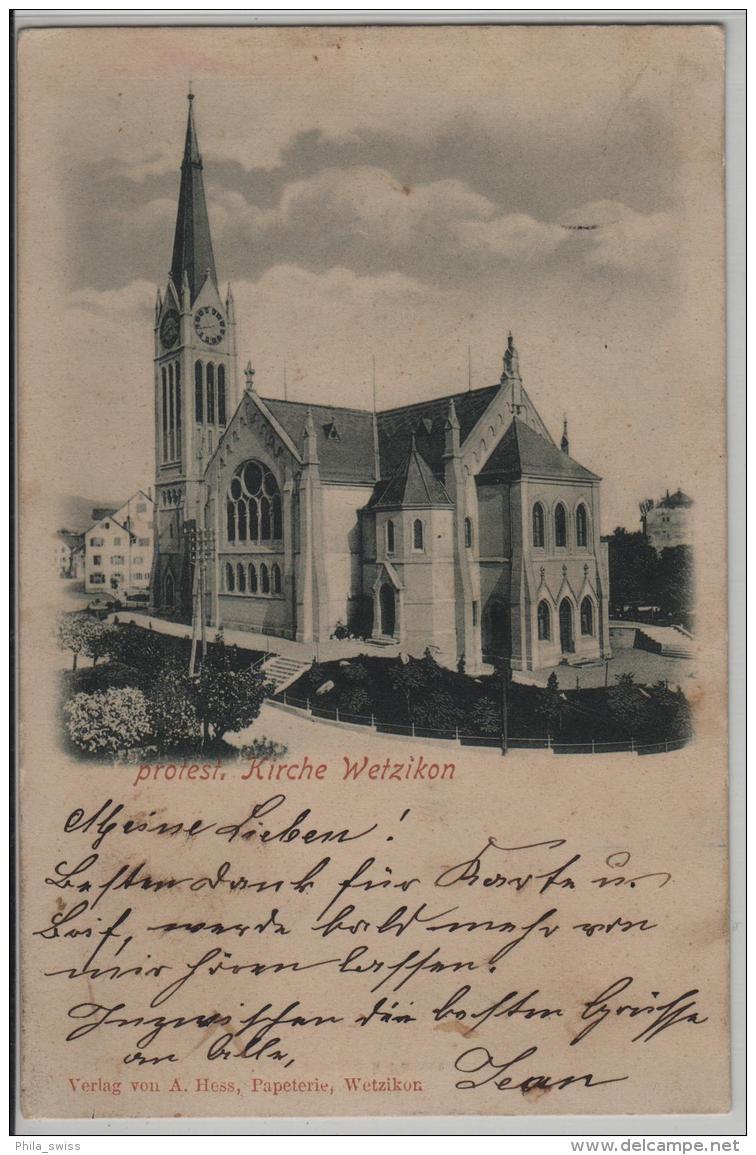 protest. Kirche Wetzikon
Meine Lieben!
Besten Dank für Karte u.
Brif, werde bald mehr von
mir hören lassen.
Inzwischen die besten Grüsse
an Alle,
Jean
Verlag von A. Hess, Papeterie, Wetzikon
Phila_swiss
www.delcampe.net